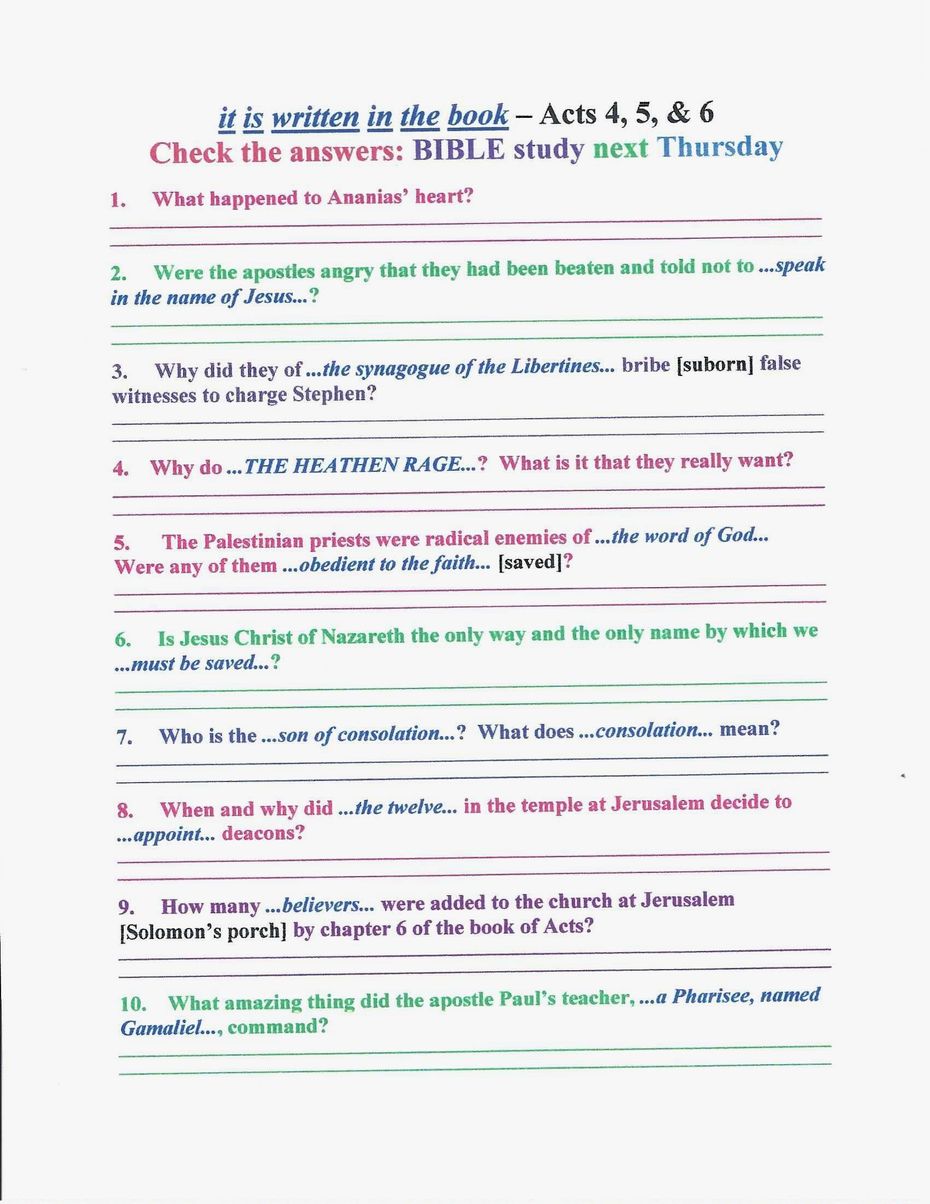 it is written in the book – Acts 4, 5, & 6
Check the answers: BIBLE study next Thursday
1. What happened to Ananias’ heart?
2. Were the apostles angry that they had been beaten and told not to ...speak
in the name of Jesus...?
3. Why did they of ...the synagogue of the Libertines... bribe [suborn] false
witnesses to charge Stephen?
4. Why do ...THE HEATHEN RAGE...? What is it that they really want?
5. The Palestinian priests were radical enemies of ...the word of God...
Were any of them ...obedient to the faith... [saved]?
6. Is Jesus Christ of Nazareth the only way and the only name by which we
...must be saved...?
7. Who is the ...son of consolation...? What does ...consolation... mean?
8. When and why did ...the twelve... in the temple at Jerusalem decide to
...appoint... deacons?
9. How many ...believers... were added to the church at Jerusalem
[Solomon’s porch] by chapter 6 of the book of Acts?
10. What amazing thing did the apostle Paul’s teacher, ...a Pharisee, named
Gamaliel..., command?